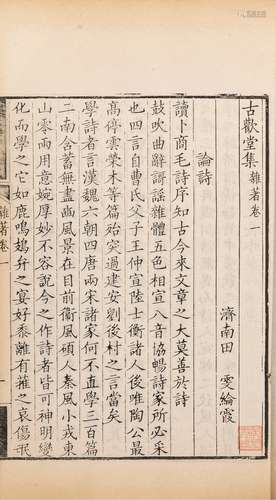 古歡堂集雜著卷一
濟南田　雯綸霞
論詩
讀卜商毛詩序知古今來文章之大莫善於詩
鼓吹曲辭謠雜體五色相宣八音協暢詩家所必采
也四言自曹氏父子王仲宣陸士衡諸人後唯陶公最
高停雲榮木等篇殆突過建安劉後村之言當矣
學詩者言漢魏六朝四唐兩宋諸家何不直學三百篇
二南含蓄無盡豳風景在目前衛風碩人秦風小戎東
山零雨用意婉厚妙不容說今之作詩者皆可神明變
化而學之它如鹿鳴鴇弁之宴好黍離有蓷之哀傷氓
雜著卷一